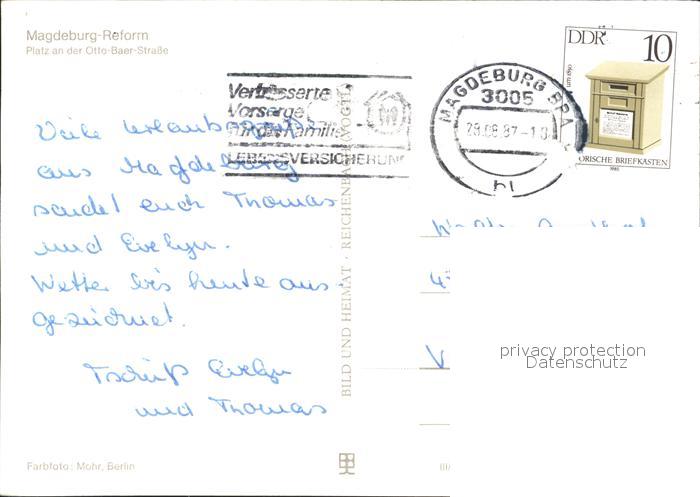 Magdeburg-Reform
Platz an der Otto-Baer-Straße
Verbesserte
Vorsorge
für die Familie
LEBENSVERSICHERUNG
MAGDEBURG BPA
3005
29.08.87-1
bl
DDR 10
um 1890
ORISCHE BRIEFKASTEN
1985
Viele Urlaubsgrüße
aus Magdeburg
sendet euch Thomas
und Evelyn.
Wetter bis heute aus-
gezeichnet.
Tschüß Evelyn
und Thomas
BILD UND HEIMAT · REICHENBACH (VOGTL)
privacy protection
Datenschutz
V
Farbfoto: Mohr, Berlin
III/